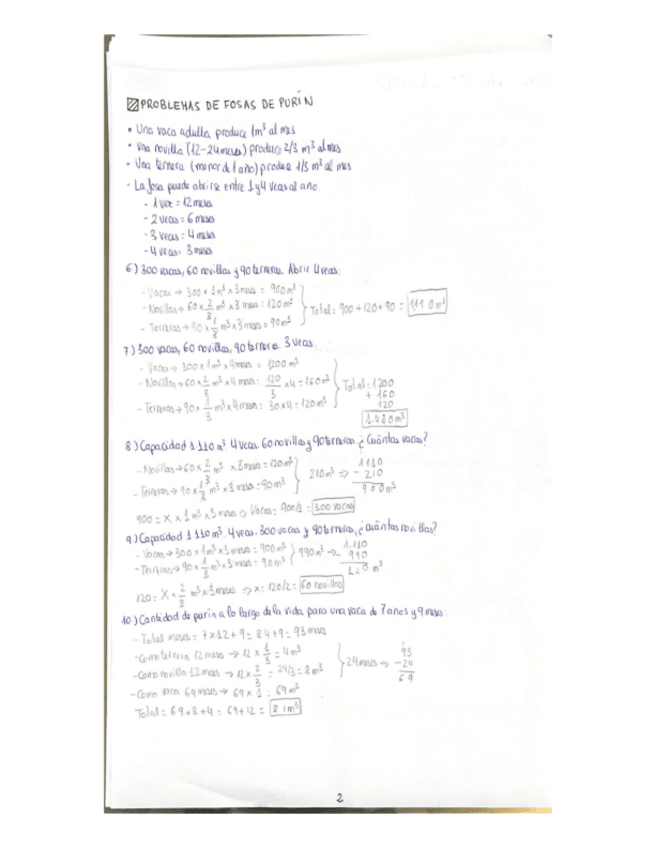 PROBLEMAS DE FOSAS DE PURÍN
• Una vaca adulta produce 1m³ al mes
• Una novilla (12-24 meses) produce 2/3 m³ al mes
• Una ternera (menor de 1 año) produce 1/3 m³ al mes
• La fosa puede abrirse entre 1 y 4 veces al año.
- 1 vez = 12 meses
- 2 veces = 6 meses
- 3 veces = 4 meses
- 4 veces = 3 meses
6) 300 vacas, 60 novillas y 90 terneras. Abrir 4 veces:
- Vacas → 300 x 1m³ x 3 meses = 900m³
- Novillas → 60 x 2/3 m³ x 3 meses = 120m³
- Terneras → 90 x 1/3 m³ x 3 meses = 90m³
Total = 900 + 120 + 90 = 1110m³
7) 300 vacas, 60 novillas, 90 terneras. 3 veces.
- Vacas → 300 x 1m³ x 4 meses = 1200m³
- Novillas → 60 x 2/3 m³ x 4 meses = 120/3 x 4 = 160m³
- Terneras → 90 x 1/3 m³ x 4 meses = 30 x 4 = 120m³
Total = 1200
+ 160
120
1.480m³
8) Capacidad 1110m³. 4 veces. 60 novillas y 90 terneras ¿Cuántas vacas?
- Novillas → 60 x 2/3 m³ x 3 meses = 120m³
- Terneras → 90 x 1/3 m³ x 3 meses = 90m³
210m³ ⇒
1110
- 210
900m³
900 = X x 1m³ x 3 meses ⇒ Vacas = 900/3 = 300 vacas
9) Capacidad 1110m³. 4 veces. 300 vacas y 90 terneras, ¿cuántas novillas?
- Vacas → 300 x 1m³ x 3 meses = 900m³
- Terneras → 90 x 1/3 m³ x 3 meses = 90m³
990m³ ⇒
1.110
- 990
120 m³
120 = X x 2/3 m³ x 3 meses ⇒ x = 120/2 = 60 novillas
10) Cantidad de purín a lo largo de la vida para una vaca de 7 años y 9 meses:
- Total meses = 7 x 12 + 9 = 84 + 9 = 93 meses
- Como ternera 12 meses → 12 x 1/3 = 4m³
- Como novilla 12 meses → 12 x 2/3 = 24/3 = 8m³
24 meses ⇒
93
- 24
69
- Como vaca 69 meses → 69 x 1 = 69m³
Total = 69 + 8 + 4 = 69 + 12 = 81m³
2